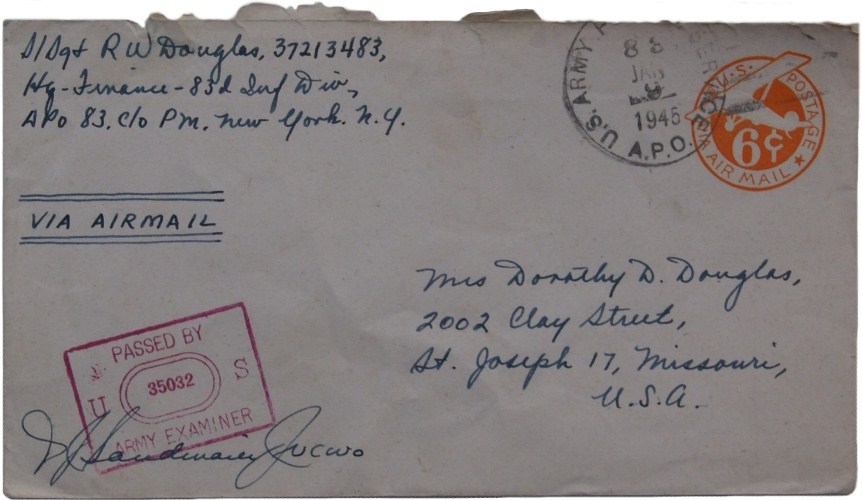 S/Sgt R W Douglas, 37213483,
Hq-Finance-83d Inf Div,
APO 83, c/o P.M., New York. N.Y.
U.S. ARMY
88
JAN
9
1945
A.P.O.
U.S. POSTAGE
6¢
VIA AIR MAIL
VIA AIRMAIL
Mrs Dorothy D. Douglas,
2002 Clay Street,
St. Joseph 17, Missouri,
U.S.A.
PASSED BY
U 35032 S
ARMY EXAMINER